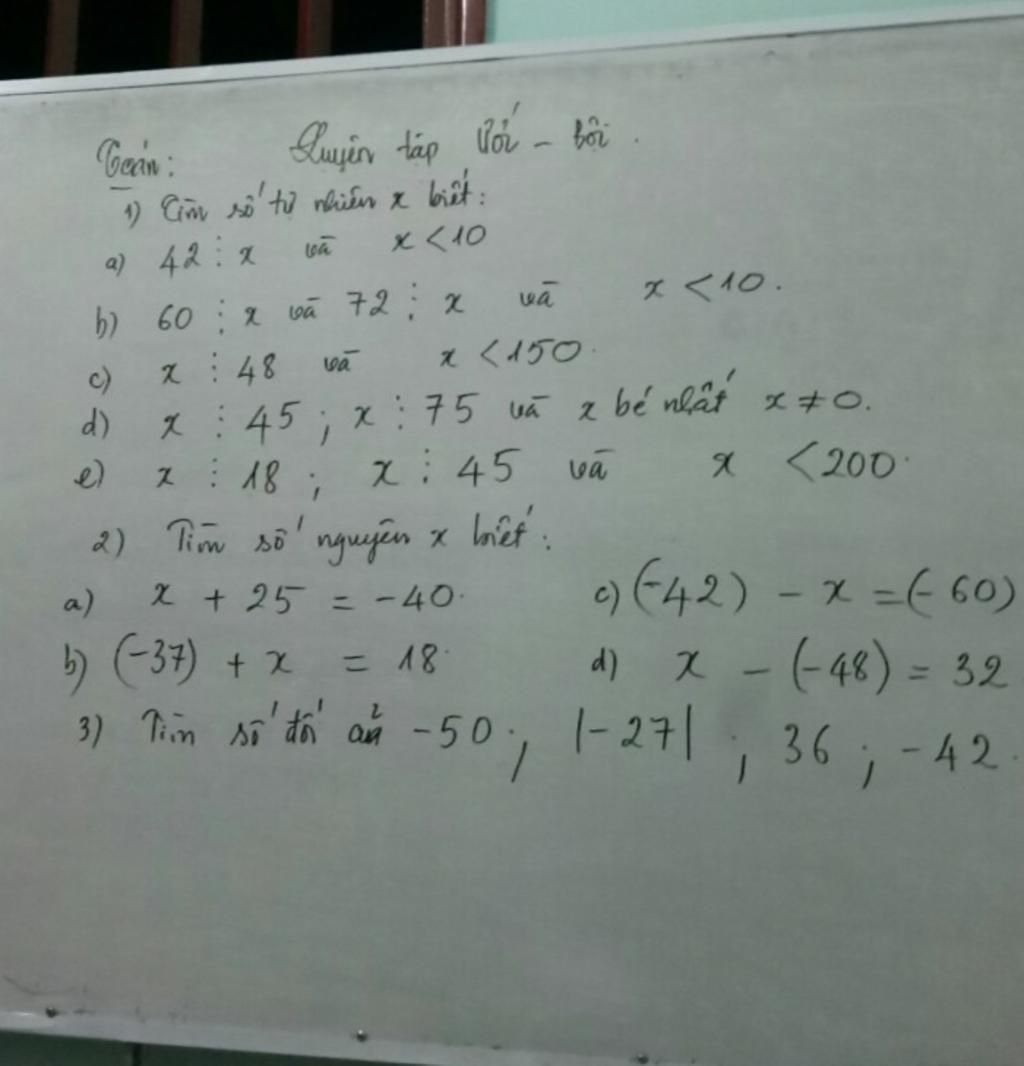 Toán: Luyện tập Ước - bội.
1) Tìm số tự nhiên x biết:
a) 42 ⋮ x và x < 10
b) 60 ⋮ x và 72 ⋮ x và x < 10.
c) x ⋮ 48 và x < 150.
d) x ⋮ 45 ; x ⋮ 75 và x bé nhất x ≠ 0.
e) x ⋮ 18 ; x ⋮ 45 và x < 200.
2) Tìm số nguyên x biết:
a) x + 25 = -40. c) (-42) - x = (-60)
b) (-37) + x = 18. d) x - (-48) = 32
3) Tìm số đối của -50 ; |-27| ; 36 ; -42.